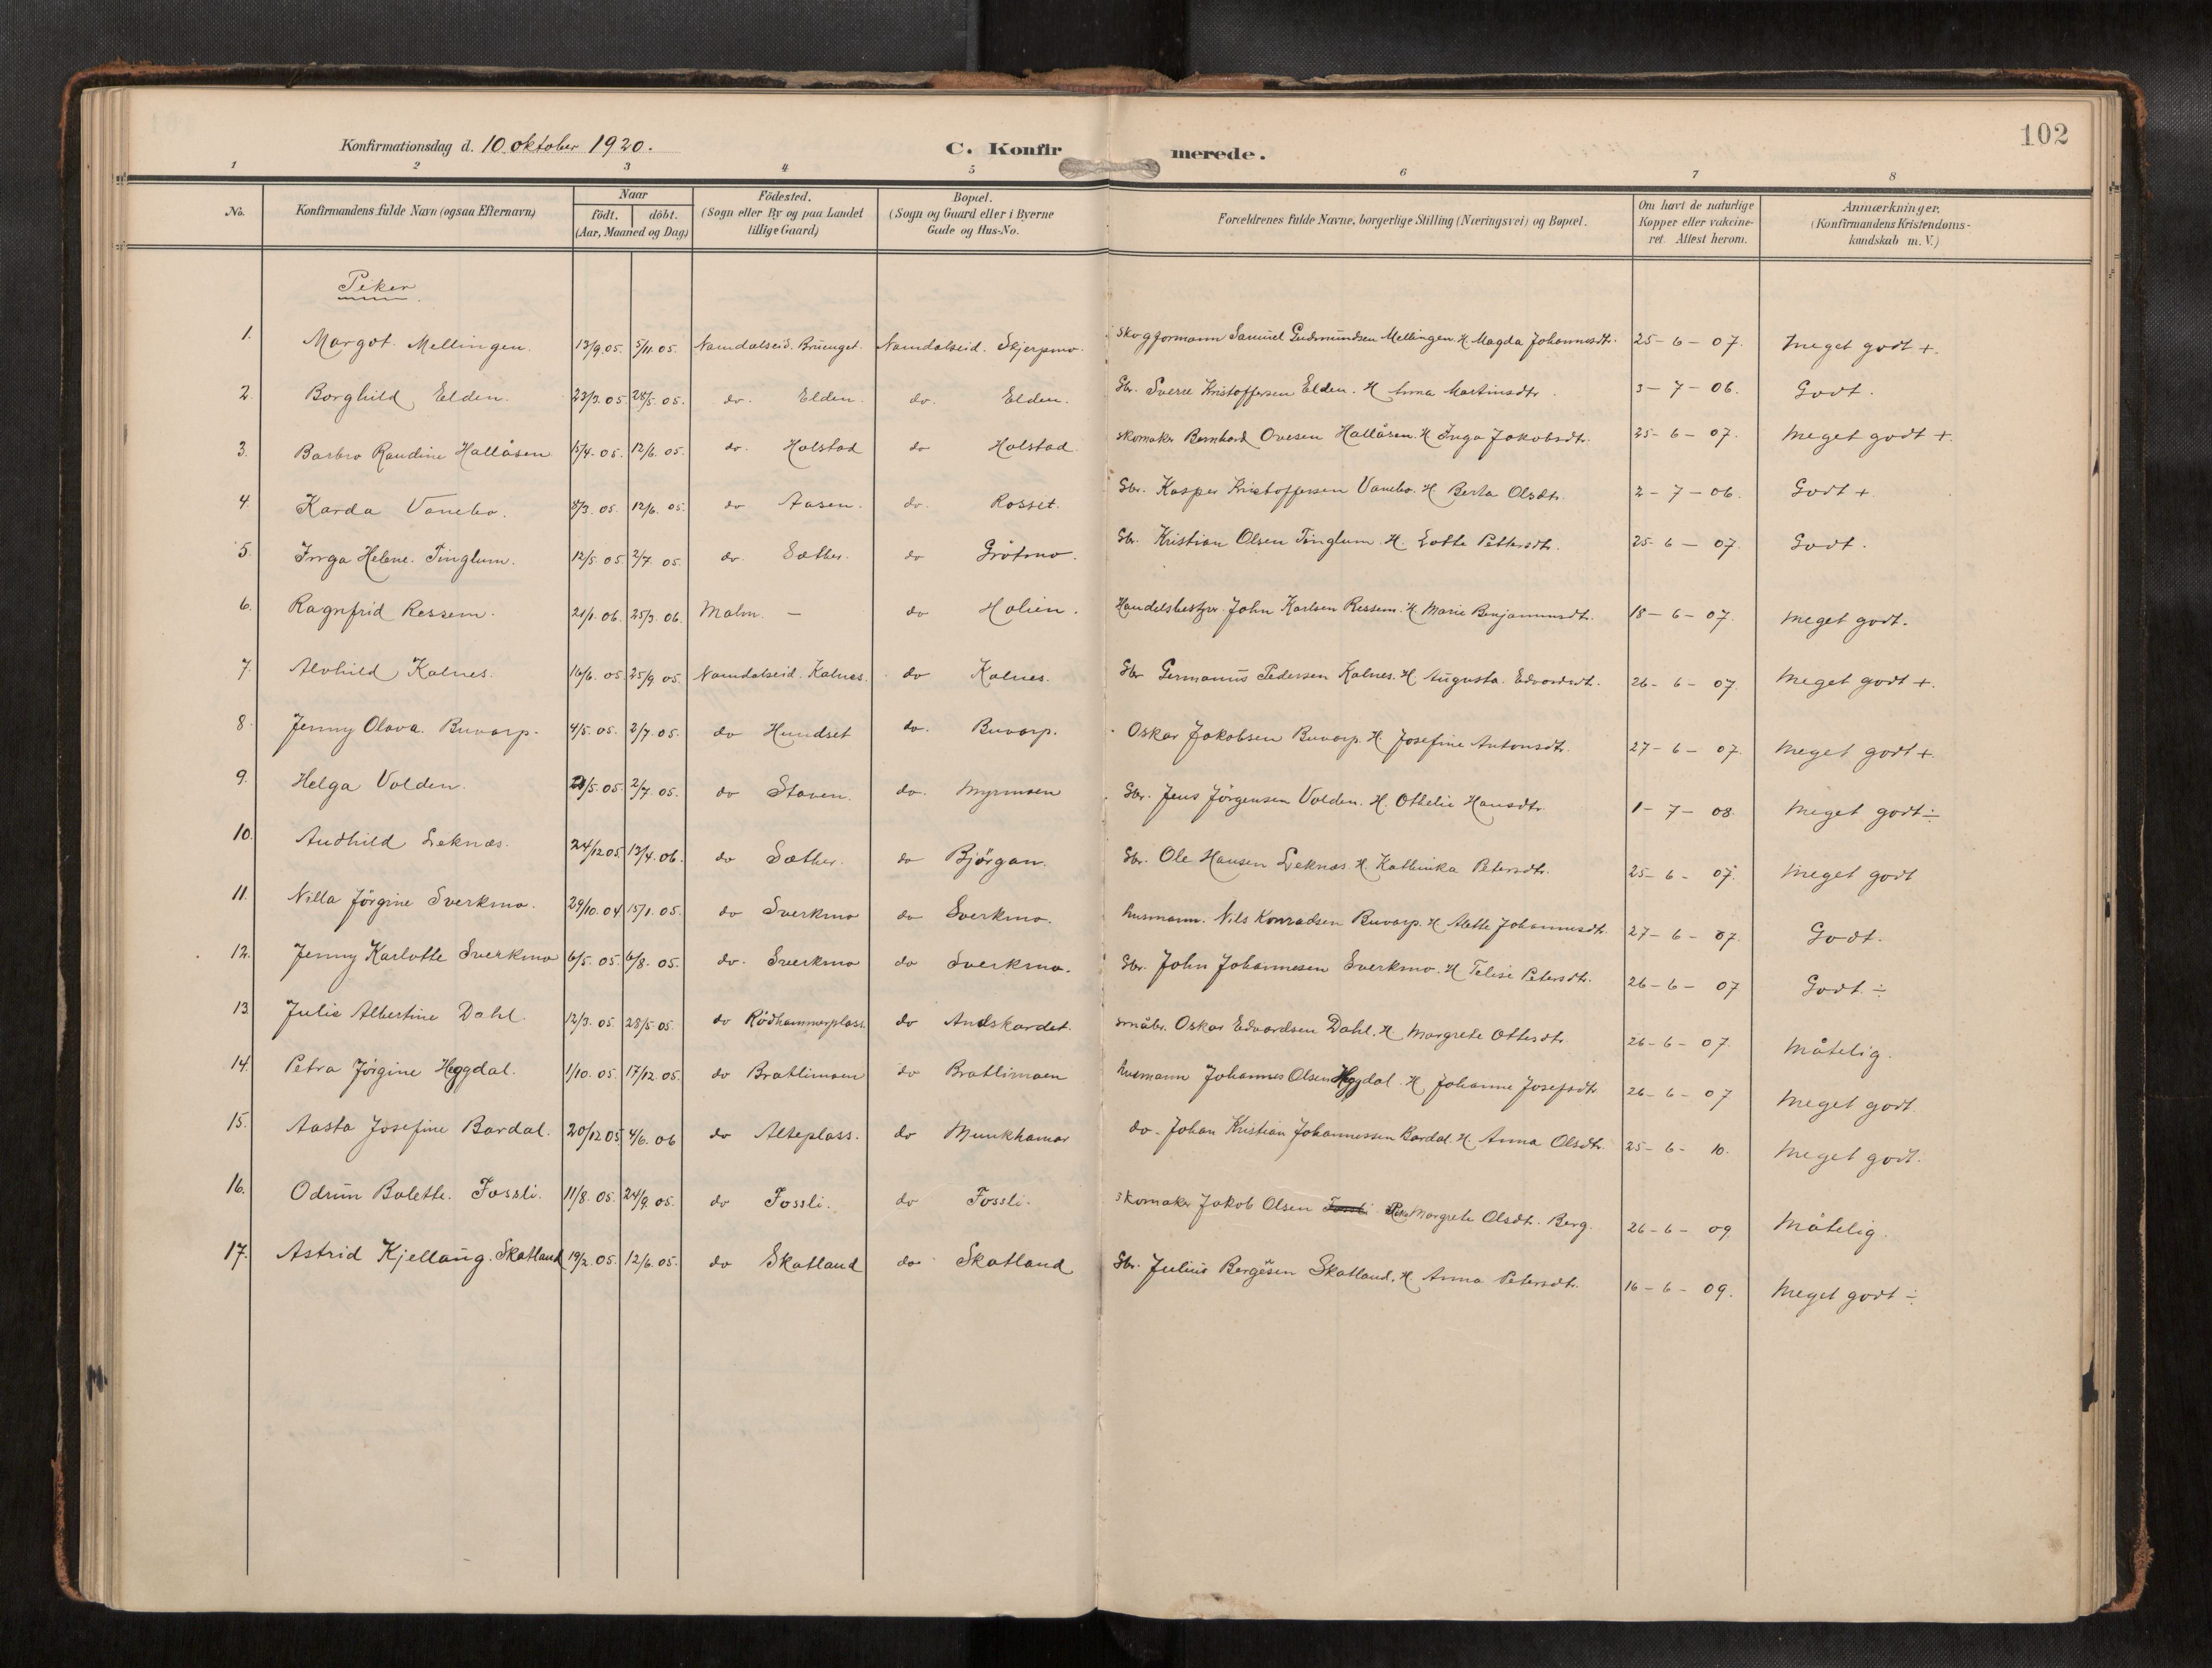 102
Konfirmationsdag d. 10. oktober 1920. C. Konfirmerede.
1 2 3 4 5 6 7 8
No. Konfirmandens fulde Navn (ogsaa Efternavn) Naar födt. döbt. (Aar, Maaned og Dag) Födested. (Sogn eller By og paa Landet tillige Gaard) Bopæl. (Sogn og Gaard eller i Byerne Gade og Hus-No. Forældrenes fulde Navne, borgerlige Stilling (Næringsvei) og Bopæl. Om havt de naturlige Kopper eller vakcineret. Attest herom. Anmærkninger. (Konfirmandens Kristendomskundskab m. V.)
Piker
1. Margot Mellingen. 13/9.05. 5/11.05. Namdalseid. Namdalseid. Skjerpmo. Skogformann Samuel Gudmundsen Mellingen. H. Magda Johannesdtr. 25-6-07. Meget godt +.
2. Borghild Elden. 23/3.05. 28/5.05. do. Elden. do. Elden. Gbr. Sverre Kristoffersen Elden. H. Anna Martinsdtr. 3-7-06. Godt.
3. Barbro Raudine Hallåsen 15/4.05. 12/6.05. do. Holstad do Holstad. Skomaker Bernhard Ovesen Hallåsen. H. Inga Jakobsdtr. 25-6-07. Meget godt +.
4. Karda Vanebo. 8/3.05. 12/6.05. do Aasen. do. Rosset. Gbr. Kasper Kristoffersen Vanebo. H. Berta Olsdtr. 2-7-06. Godt +
5. Inga Helene. Tinglum. 12/5.05. 2/7.05. do. Sæther. do Grötmo. Gbr. Kristian Olsen Tinglum. H. Lotte Pettersdtr. 25-6-07. Godt.
6. Ragnfrid Ressem. 21/1.06. 25/3.06. Malm. — do Holien. Handelsbestyr. John Karlsen Ressem. H. Marie Benjaminsdtr. 18-6-07. Meget godt.
7. Alvhild Kalnes. 16/6.05. 25/9.05. Namdalseid. Kalnes. do Kalnes. Gbr Germanus Pedersen Kalnes. H. Augusta. Edvardsdtr. 26-6-07. Meget godt +.
8. Jenny Olava. Buvarp. 4/5.05. 2/7.05. do Hundset do. Buvarp. Oskar Jakobsen Buvarp. H. Josefine Antonsdtr. 27-6-07. Meget godt +
9. Helga Volden. /5.05. 2/7.05. do Staven. do. Myrmoen Gbr. Jens Jörgensen Volden. H. Othelie Hansdtr. 1-7-08. Meget godt ÷
10. Audhild Leknæs. 24/12 05. 13/4.06. do Sæther. do Bjørgan. Gbr. Ole Hansen Leknæs. H. Kathinka Petersdtr. 25-6-07. Meget godt
11. Nilla Jörgine Sverkmo. 29/10.04 15/1.05. do Sverkmo do Sverkmo. Husmann. Nils Konradsen Buvarp. H. Alette Johannesdtr. 27-6-07. Godt.
12. Jenny Karlotte Sverkmo 6/5.05. 6/8.05. do. Sverkmo do Sverkmo. Gbr. John Johannesen Sverkmo. H. Telise Petersdtr. 26-6-07 Godt ÷
13. Julie Albertine Dahl. 12/3.05. 28/5.05. do Rödhammerplass. do Andskardet. småbr. Oskar Edvardsen Dahl. H. Margrete Ottesdtr. 26-6-07. Måtelig.
14. Petra Jörgine Heggdal. 1/10.05. 17/12.05. do Brattimoen do Brattimoen husmann Johannes Olsen Heggdal. H. Johanne Josefsdtr 26-6-07 Meget godt.
15. Aasta Josefine Bardal. 20/12 05 4/6.06 do Alteplass. do Munkhamar do. Johan Kristian Johannessen Bardal. H. Anna Olsdtr. 25-6-10. Meget godt.
16. Odrun Bolette. Fossli. 11/8.05. 24/9.05. do Fossli. do Fossli. Skomaker Jakob Olsen Fossli Margrete Olsdt. Berg. 26-6-09 Måtelig.
17. Astrid Kjellaug. Skatland 19/2.05. 12/6.05. do Skatland do Skatland Gbr. Julius Bergesen Skatland. H. Anna Petersdtr. 16-6-09. Meget godt ÷